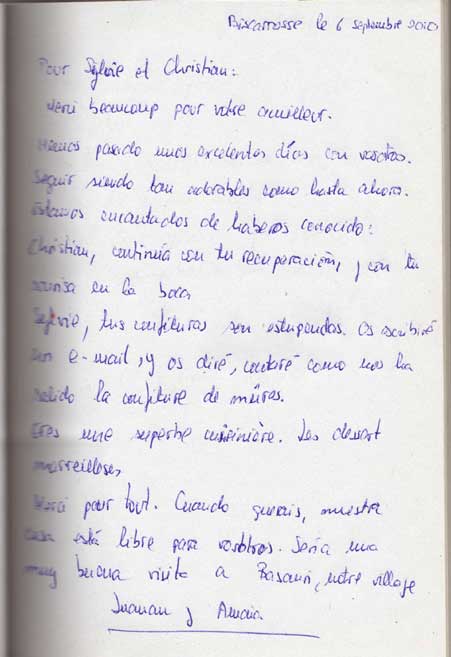 Biscarrosse le 6 septembre 2010
Pour Sylvie et Christian:
Merci beaucoup pour votre
Hemos pasado unos excelentes días con vosotros.
Seguir siendo tan adorables como hasta ahora.
Estamos encantados de haberos conocido:
Christian, continúa con tu recuperación, y con tu
sonrisa en la boca
Sylvie, tus confituras son estupendas. Os escribiré
un e-mail, y os diré, contaré como nos ha
salido la confiture de mûres.
Eres une superbe cuisinière. Les dessert
merveilloses
Merci pour tout. Cuando querais, nuestra
casa está libre para vosotros. Sería una
muy buena visita a Basauri, notre village
Juanan y Amaia